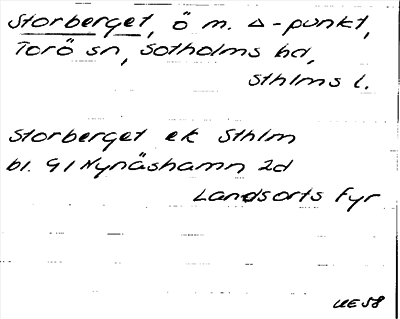 Storberget, Ö m. Δ-punkt,
Torö sn, Sotholms hd,
Sthlms l.
Storberget ek Sthlm
bl. 91 Nynäshamn 2d
Landsorts Fyr
UE58